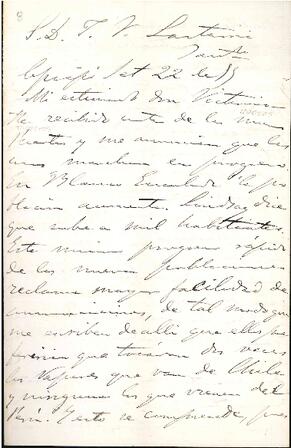 S. D. J. V. Lastarria
Copiapó Set 22 de 55
Mi estimado don Victorino
He recibido cartas de las
y me anuncian que las
marchan en progreso
En Blanco Encalada la po
blacion aumenta dice
que sube a mil habitantes.
Este mismo progreso rápido
de las nuevas poblaciones
reclama mayor facilidad de
comunicaciones, de tal modo que
me escriben de alli que ellos pre
feririan que tocáran dos veces
los Vapores que van de Chile
y ninguna los que vienen del
Perú. Y esto se comprende, pues